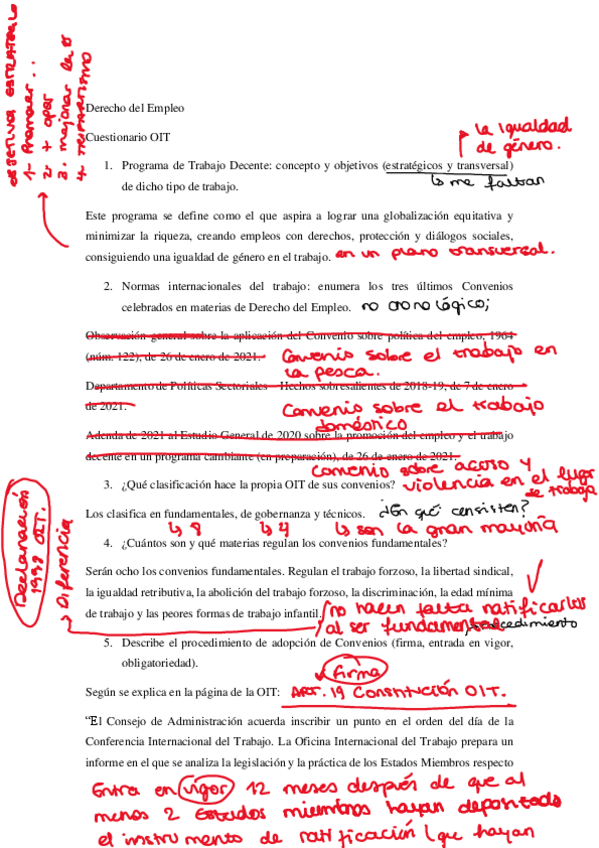 OBJETIVOS ESTRATÉGICO
1- Promover..
2- + opor
3. mejorar la
4- TRIPARTISMO
Derecho del Empleo
Cuestionario OIT
La igualdad
de género.
1. Programa de Trabajo Decente: concepto y objetivos (estratégicos y transversal)
de dicho tipo de trabajo.
↳ me faltan
Este programa se define como el que aspira a lograr una globalización equitativa y
minimizar la riqueza, creando empleos con derechos, protección y diálogos sociales,
consiguiendo una igualdad de género en el trabajo. en un plano transversal.
2. Normas internacionales del trabajo: enumera los tres últimos Convenios
celebrados en materias de Derecho del Empleo. no cronológico;
Observación general sobre la aplicación del Convenio sobre política del empleo, 1964
(núm. 122), de 26 de enero de 2021. Convenio sobre el trabajo en
la pesca.
Departamento de Políticas Sectoriales – Hechos sobresalientes de 2018-19, de 7 de enero
de 2021. Convenio sobre el trabajo
doméstico
Adenda de 2021 al Estudio General de 2020 sobre la promoción del empleo y el trabajo
decente en un programa cambiante (en preparación), de 26 de enero de 2021.
convenio sobre acoso y
3. ¿Qué clasificación hace la propia OIT de sus convenios? violencia en el lugar
de trabajo
Los clasifica en fundamentales, de gobernanza y técnicos. ¿En qué consisten?
↳ 8 ↳ 4 ↳ son la gran mayoría
4. ¿Cuántos son y qué materias regulan los convenios fundamentales?
Declaración
1998 OIT.
Diferencia
Serán ocho los convenios fundamentales. Regulan el trabajo forzoso, la libertad sindical,
la igualdad retributiva, la abolición del trabajo forzoso, la discriminación, la edad mínima
de trabajo y las peores formas de trabajo infantil. no hacen falta ratificarlos
al ser fundamentales procedimiento
5. Describe el procedimiento de adopción de Convenios (firma, entrada en vigor,
obligatoriedad).
firma
Según se explica en la página de la OIT: ART. 19 Constitución OIT.
“El Consejo de Administración acuerda inscribir un punto en el orden del día de la
Conferencia Internacional del Trabajo. La Oficina Internacional del Trabajo prepara un
informe en el que se analiza la legislación y la práctica de los Estados Miembros respecto
Entra en vigor 12 meses después de que al
menos 2 Estados miembros hayan depositado
el instrumento de ratificación (que hayan